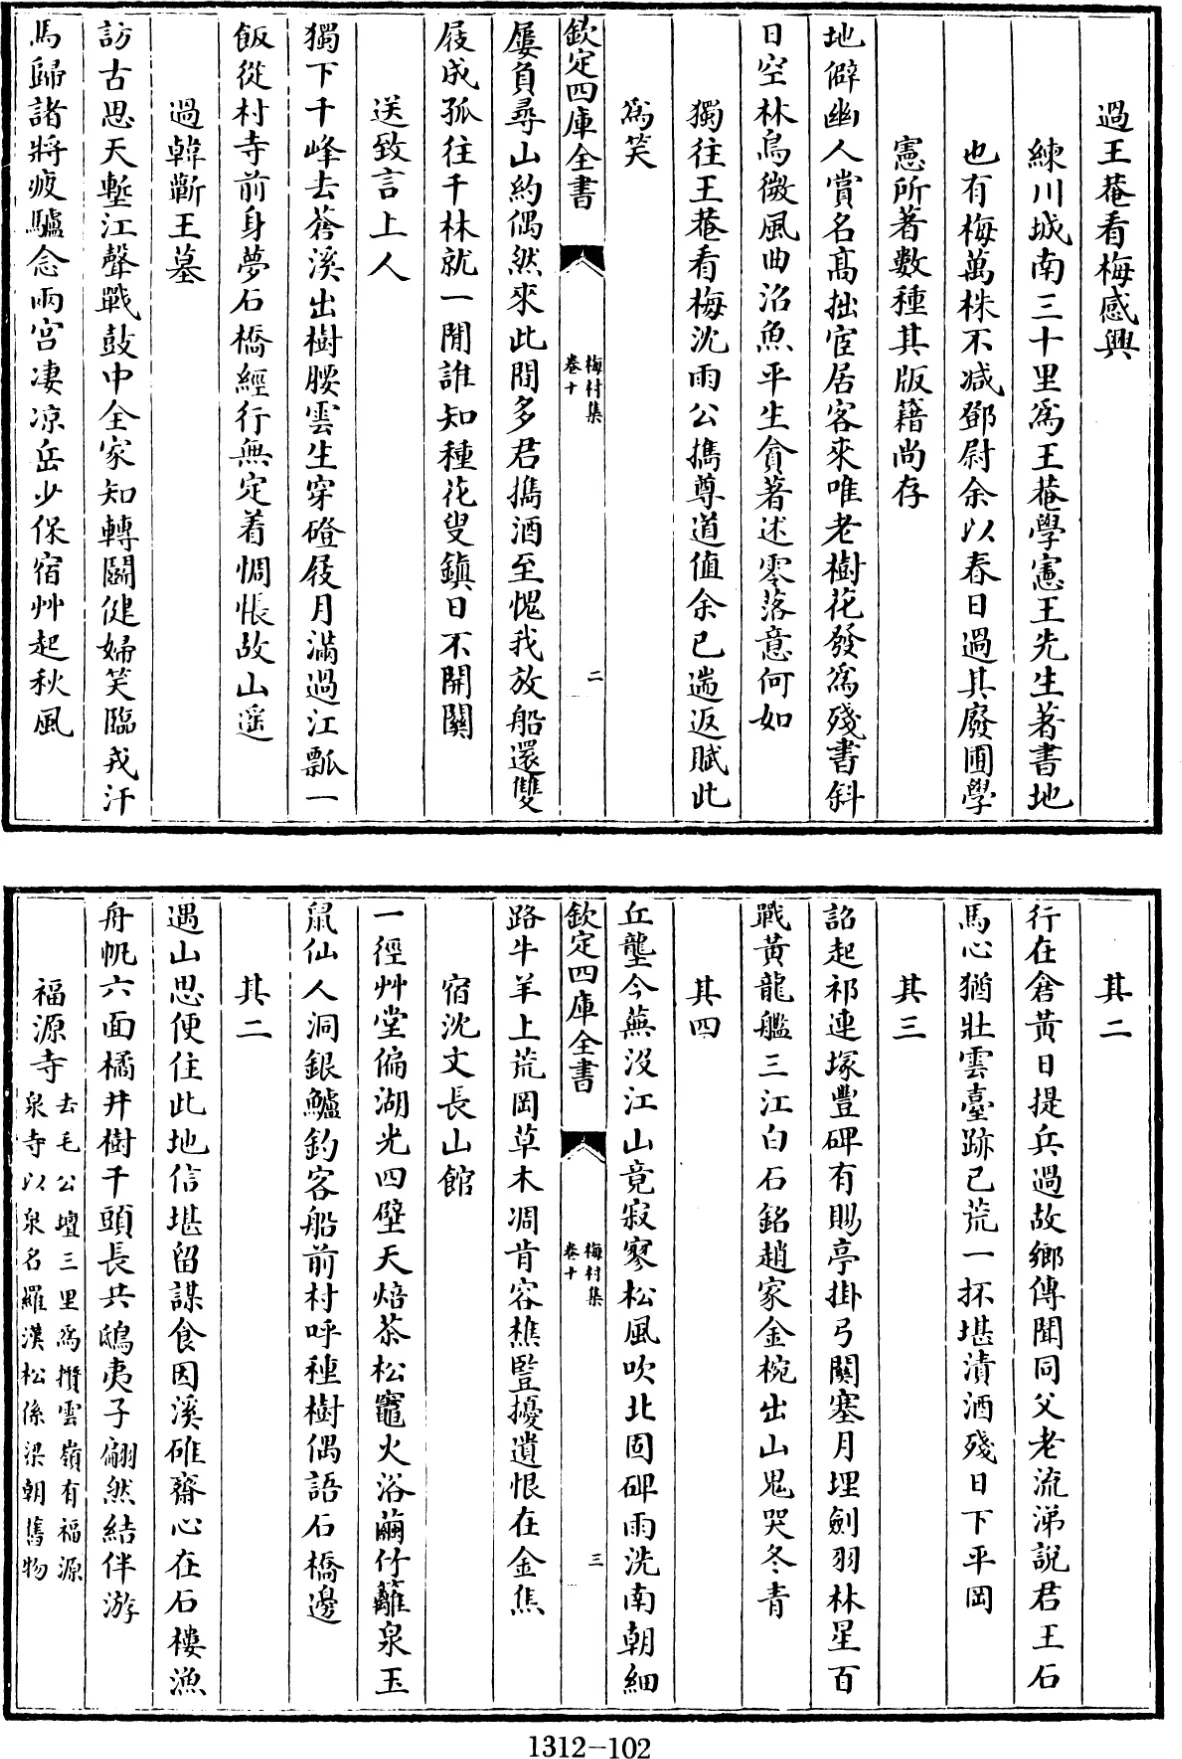 過王菴看梅感興
練川城南三十里爲王菴學憲王先生著書地
也有梅萬株不减鄧尉余以春日過其廢圃學
憲所著數種其版籍尚存
地僻幽人賞名髙拙宦居客來唯老樹花發爲殘書斜
日空林鳥微風曲沼魚平生貪著述零落意何如
獨往王菴看梅沈雨公擕尊道值余已遄返賦此
爲笑
欽定四庫全書
梅村集
卷十
二
屢負尋山約偶然來此間多君擕酒至愧我放船還雙
屐成孤往千林就一閒誰知種花叟鎮日不開關
送致言上人
獨下千峰去蒼溪出樹腰雲生穿磴屐月滿過江瓢一
飯從村寺前身夢石橋經行無定着惆悵故山遥
過韓蘄王墓
訪古思天塹江聲戰鼓中全家知轉鬬健婦笑臨戎汗
馬歸諸將疲驢念兩宫凄凉岳少保宿艸起秋風
其二
行在倉黄日提兵過故鄉傳聞同父老流涕説君王石
馬心猶壯雲臺跡已荒一抔堪漬酒殘日下平岡
其三
詔起祁連塚豐碑有賜亭掛弓關塞月埋劍羽林星百
戰黄龍艦三江白石銘趙家金椀出山鬼哭冬青
其四
丘壟今蕪没江山竟寂寥松風吹北固碑雨洗南朝細
欽定四庫全書
梅村集
卷十
三
路牛羊上荒岡草木凋肯容樵豎擾遺恨在金焦
宿沈文長山館
一徑艸堂偏湖光四壁天焙茶松竈火浴繭竹籬泉玉
鼠仙人洞銀鱸釣客船前村呼種樹偶語石橋邊
其二
遇山思便住此地信堪留謀食因溪碓齋心在石樓漁
舟帆六面橘井樹千頭長共鴟夷子翩然結伴游
福源寺
去毛公壇三里爲攢雲嶺有福源
泉寺以泉名羅漢松係梁朝舊物
1312—102